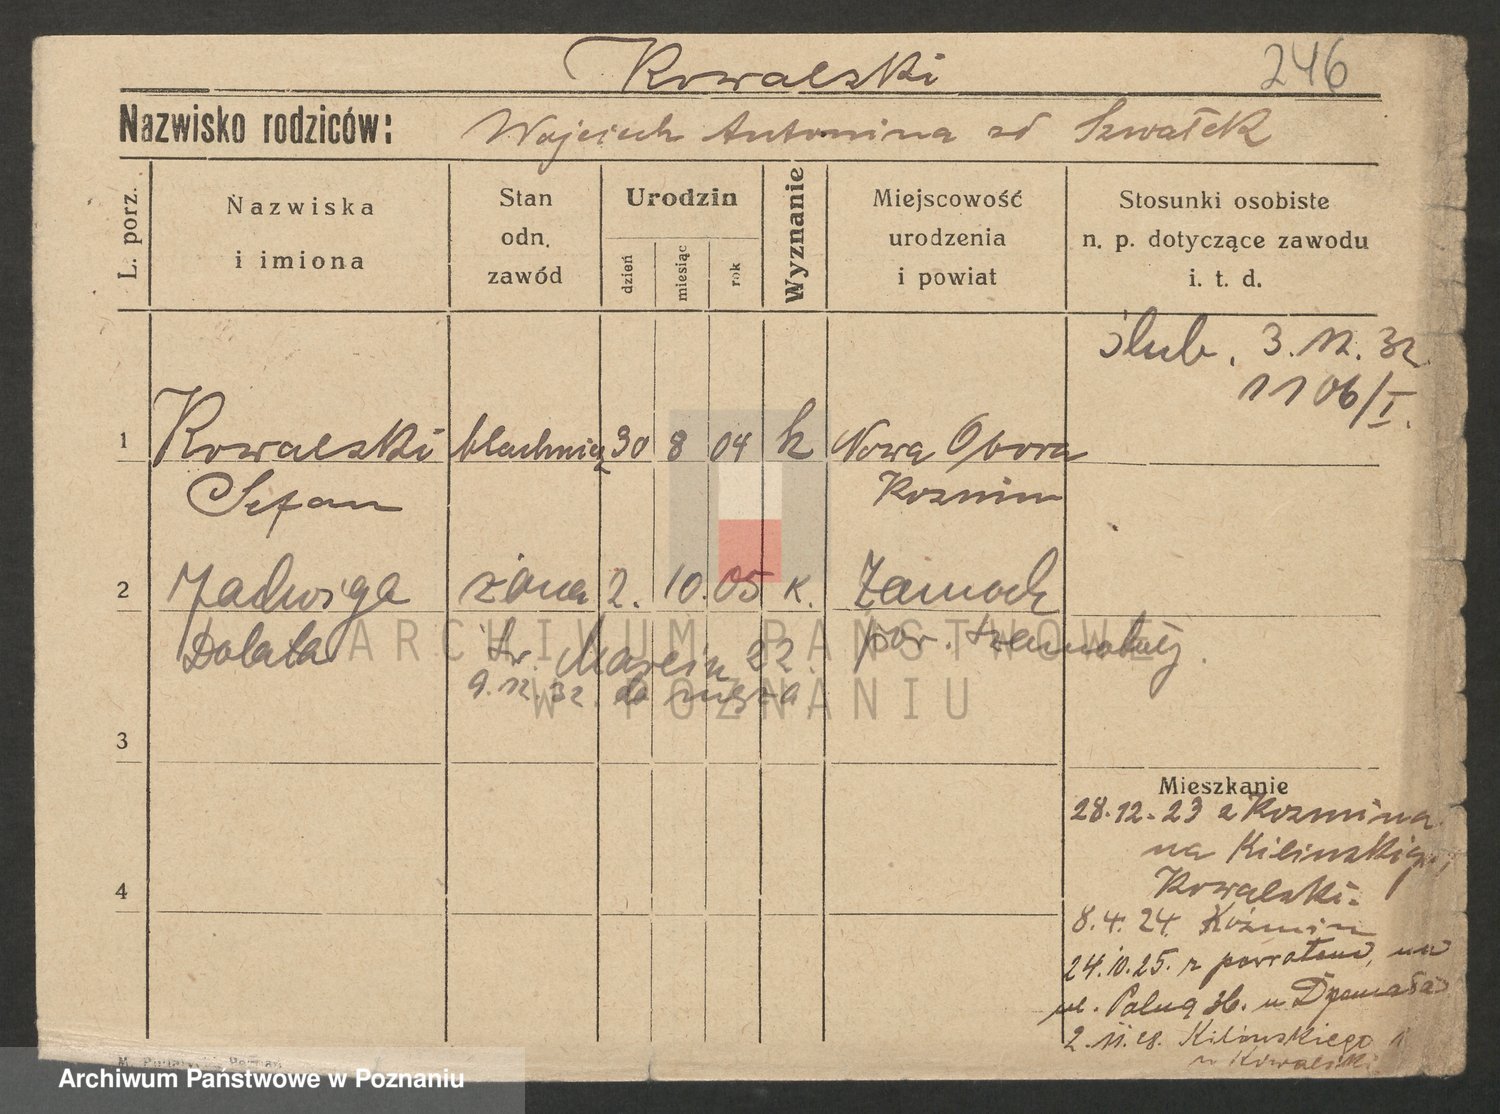 Kowalski 246
Nazwisko rodziców: Wojciech Antonina zd Szwałek
L. porz.
Nazwiska
i imiona
Stan
odn.
zawód
Urodzin
dzień
miesiąc
rok
Wyznanie
Miejscowość
urodzenia
i powiat
Stosunki osobiste
n. p. dotyczące zawodu
i. t. d.
ślub. 3.12.32
1106/I.
1 Kowalski blacharz 30 8 04 k Nowa Obora
Stefan Kozmin
2 Jadwiga żona 2. 10. 05 k. Zamość
Dolata św. Marcin 22 pow.
9.12.32 do męża
3
Mieszkanie
28.12.23 z Kozmina
na Kilińskiego,
4
Kowalski.
8.4.24 Koźmin
24.10.25. z powrotem, na
ul. u
2.11.28. Kilińskiego 1
u Kowalski
ARCHIWUM PAŃSTWOWE
W POZNANIU
Archiwum Państwowe w Poznaniu